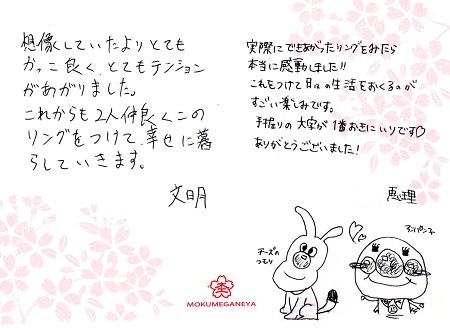 想像していたよりとても
かっこ良く、とてもテンション
があがりました。
これからも2人仲良くこの
リングをつけて幸せに暮
らしていきます。
文明
実際にできあがったリングをみたら
本当に感動しました!!
これをつけて日々の生活をおくるのが
すごい楽しみです。
手掘りの文字が1番おきにいりです♡
ありがとうございました!
恵理
チーズの
つもり
アンパンチ
MOKUMEGANEYA